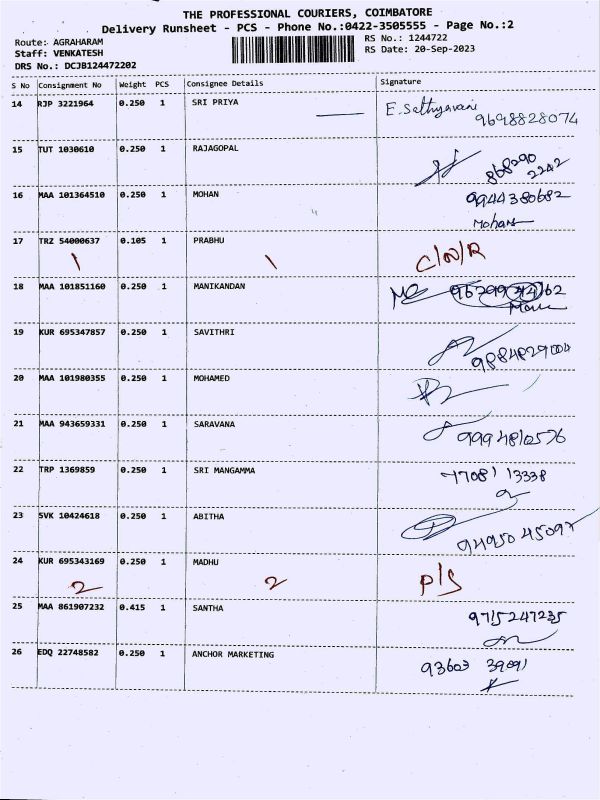 THE PROFESSIONAL COURIERS, COIMBATORE
Delivery Runsheet - PCS - Phone No.:0422-3505555 - Page No.:2
Route: AGRAHARAM
RS No.: 1244722
Staff: VENKATESH
RS Date: 20-Sep-2023
DRS No.: DCJB124472202
S No Consignment No Weight PCS Consignee Details Signature
14 RJP 3221964 0.250 1 SRI PRIYA E. Sathyavani
9698828074
15 TUT 1030610 0.250 1 RAJAGOPAL 868290
2242
16 MAA 101364510 0.250 1 MOHAN 9944380682
Mohan
17 TRZ 54000637 0.105 1 PRABHU C/N/R
1 1
18 MAA 101851160 0.250 1 MANIKANDAN
19 KUR 695347857 0.250 1 SAVITHRI
9884829004
20 MAA 101980355 0.250 1 MOHAMED
21 MAA 943659331 0.250 1 SARAVANA
9994810576
22 TRP 1369859 0.250 1 SRI MANGAMMA 77081 13338
23 SVK 10424618 0.250 1 ABITHA
94950 45097
24 KUR 695343169 0.250 1 MADHU P/S
2 2
25 MAA 861907232 0.415 1 SANTHA 9715247235
26 EDQ 22748582 0.250 1 ANCHOR MARKETING 93603 39091